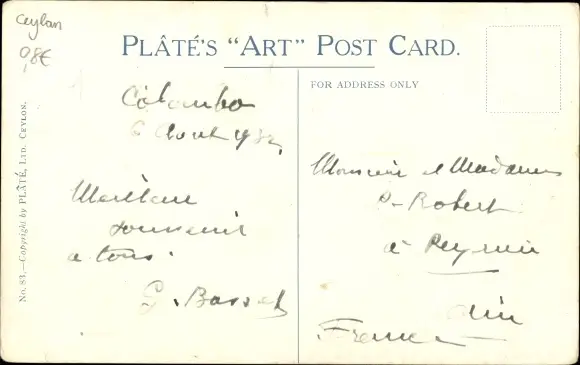 Ceylan
0,8€
PLÂTÉ'S "ART" POST CARD.
FOR ADDRESS ONLY
No. 83.—Copyright by PLÂTÉ, LTD. CEYLON.
Colombo
6 Avril
Meilleur
souvenir
a tous.
G. Basset
Monsieur et Madame
Robert
à
Ain
France